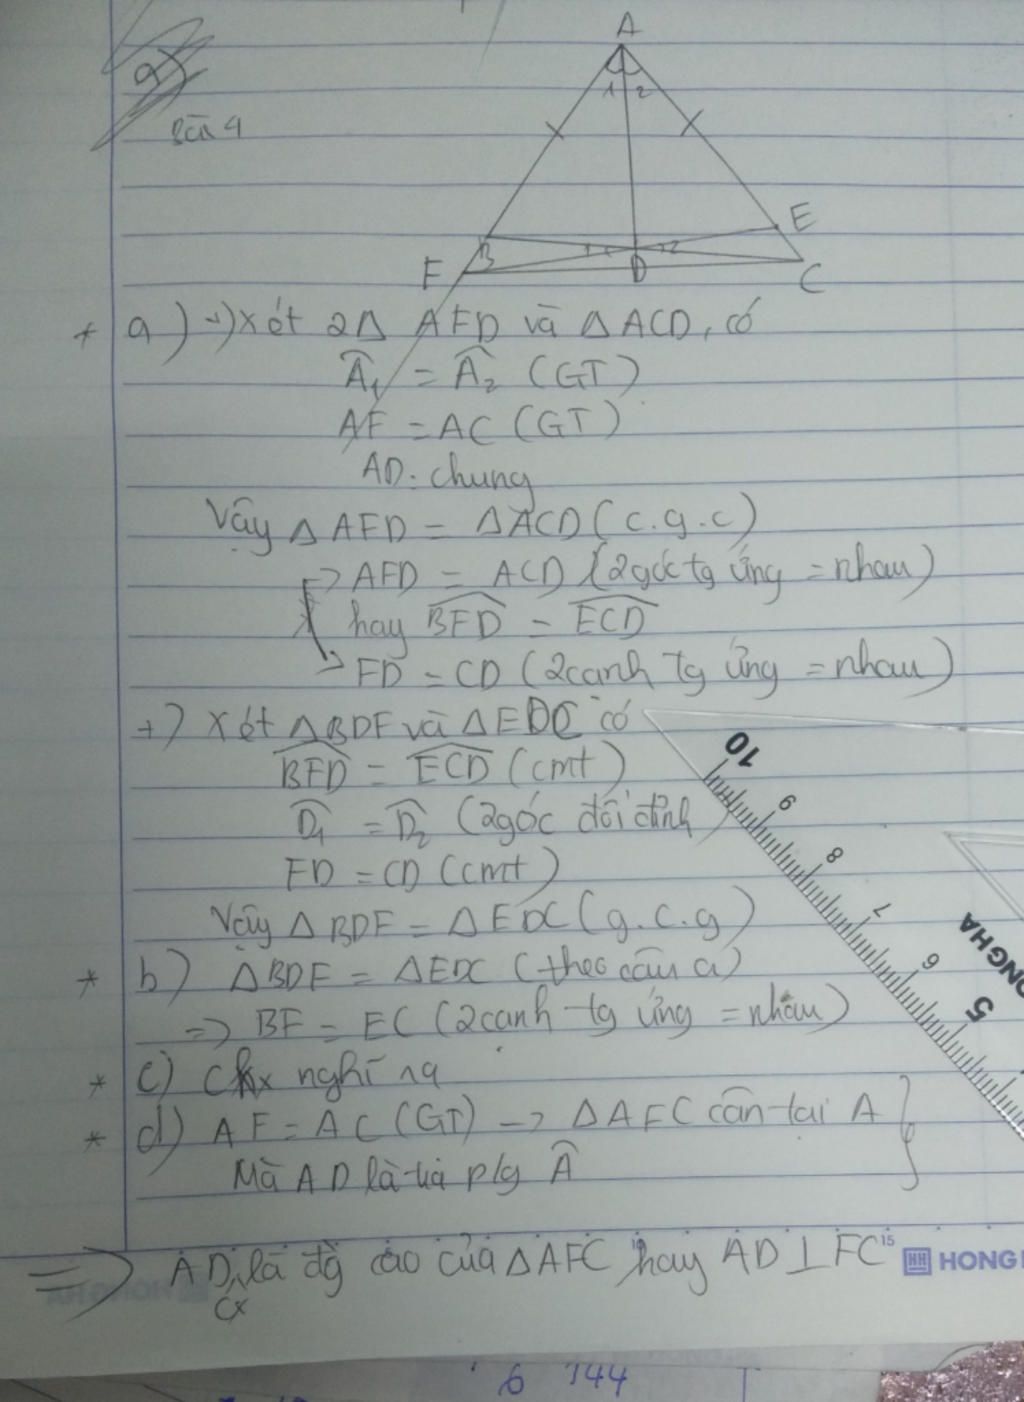 a)
Bài 4
A
1 2
E
B
F
D
C
* a) +) Xét 2Δ AFD và Δ ACD, có
Â₁ = Â₂ (GT)
AF = AC (GT)
AD: chung
Vậy Δ AFD = Δ ACD (c.g.c)
=> AFD = ACD (2góc tg ứng = nhau)
hay BFD = ECD
=> FD = CD (2cạnh tg ứng = nhau)
+) Xét ΔBDF và ΔEDC có
BFD = ECD (cmt)
D₁ = D₂ (2góc đối đỉnh)
FD = CD (cmt)
Vậy Δ BDF = Δ EDC (g.c.g)
* b) ΔBDF = ΔEDC (theo câu a)
=> BF = EC (2cạnh tg ứng = nhau)
* c) nghĩ ra
* d) AF = AC (GT) -> Δ AFC cân tại A
Mà AD là tia p/g Â
=> AD cx là đg cao của Δ AFC hay AD ⊥ FC
10
9
8
7
6
5
15
HH HONG
6 144